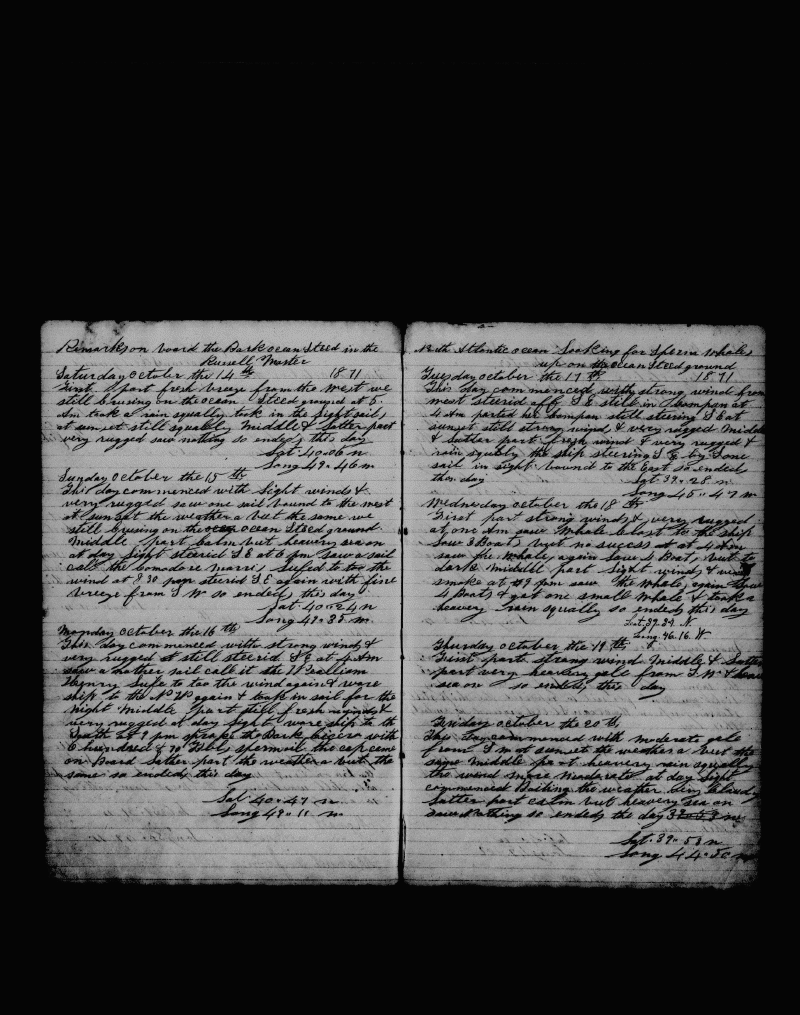 Remarks on board the Bark ocean Steed in the
Russell Master
Saturday October the 14th 1871
First part fresh breeze from the west we
still crusing on the ocean Steed ground at 5.
Am took a rain squally took in the light sail,
at sunset still squally middle & latter part
very rugged saw nothing so ended this day
Lat 40=06 n
Long 49=46 m
Sunday October the 15th
This day commenced with light winds &
very rugged saw one sail bound to the west
at sunset the weathera but the same we
still brusing on the ocean Steed ground
middle part calm but heavery sea on
at day light steerid S E at 6 pm saw a sail
call the Comodore Marris lufed to the
wind at 8 30 steerid S E again with fine
breeze from S W so ended this day
Lat 40=24 n
Long 49=35 m
Monday October the 16th
This day commenced with strong winds &
very rugged at still steerid S E at 4 Am
saw a nother sail call it the William
Henry lufe to too the wind again & ware
ship to the N W again & took in sail for the
night middle part still fresh &
very rugged at day light ware ship to th
South at 9 pm the Bark with
6 hundred & 70 sperm oil the cap came
on Board latter part the weathera but the
same so ended this day
Lat 40=47 n
Long 49=11 m
North Atlantic ocean Looking for Sperm Whales
up on the ocean Steed ground
Tuesday October the 17th 1871
This day commenced with strong wind from
west steerid off S E still in Company at
4 Am parted his Company still steering S E at
sunset still strong wind & very rugged middle
& latter part fresh wind & very rugged &
rain squally the ship steering S E by S one
sail in sight bound to the East so ended
this day Lat 39=28 n
Long 45=47 m
Wednesday October the 18th
First part strong winds & very rugged
at one Am saw Whale Close to the ship
Low 3 Boats but no sucess at at 4 Am
saw the Whale again Low 4 Boats but to
dark middle part light winds &
smoke at 9 pm saw the Whale again Low
4 Boats & got one small Whale & took a
heavery rain squally so ended this day
Lat. 39.39. N.
Long. 46.16. W
Thursday October the 19th
First part strong wind Middle & Latter
part very heavery gale from S W &
sea on so ended this day
Friday October the 20th
This day commenced with moderate gale
from S m at sunset the weathera but the
same middle part heavery rain squally
the wind more moderate at day light
commenced Boiling the weather very
latter part calm but heavery sea on
saw nothing so ended the day
Lat. 39=53 n
Long 44=50 m